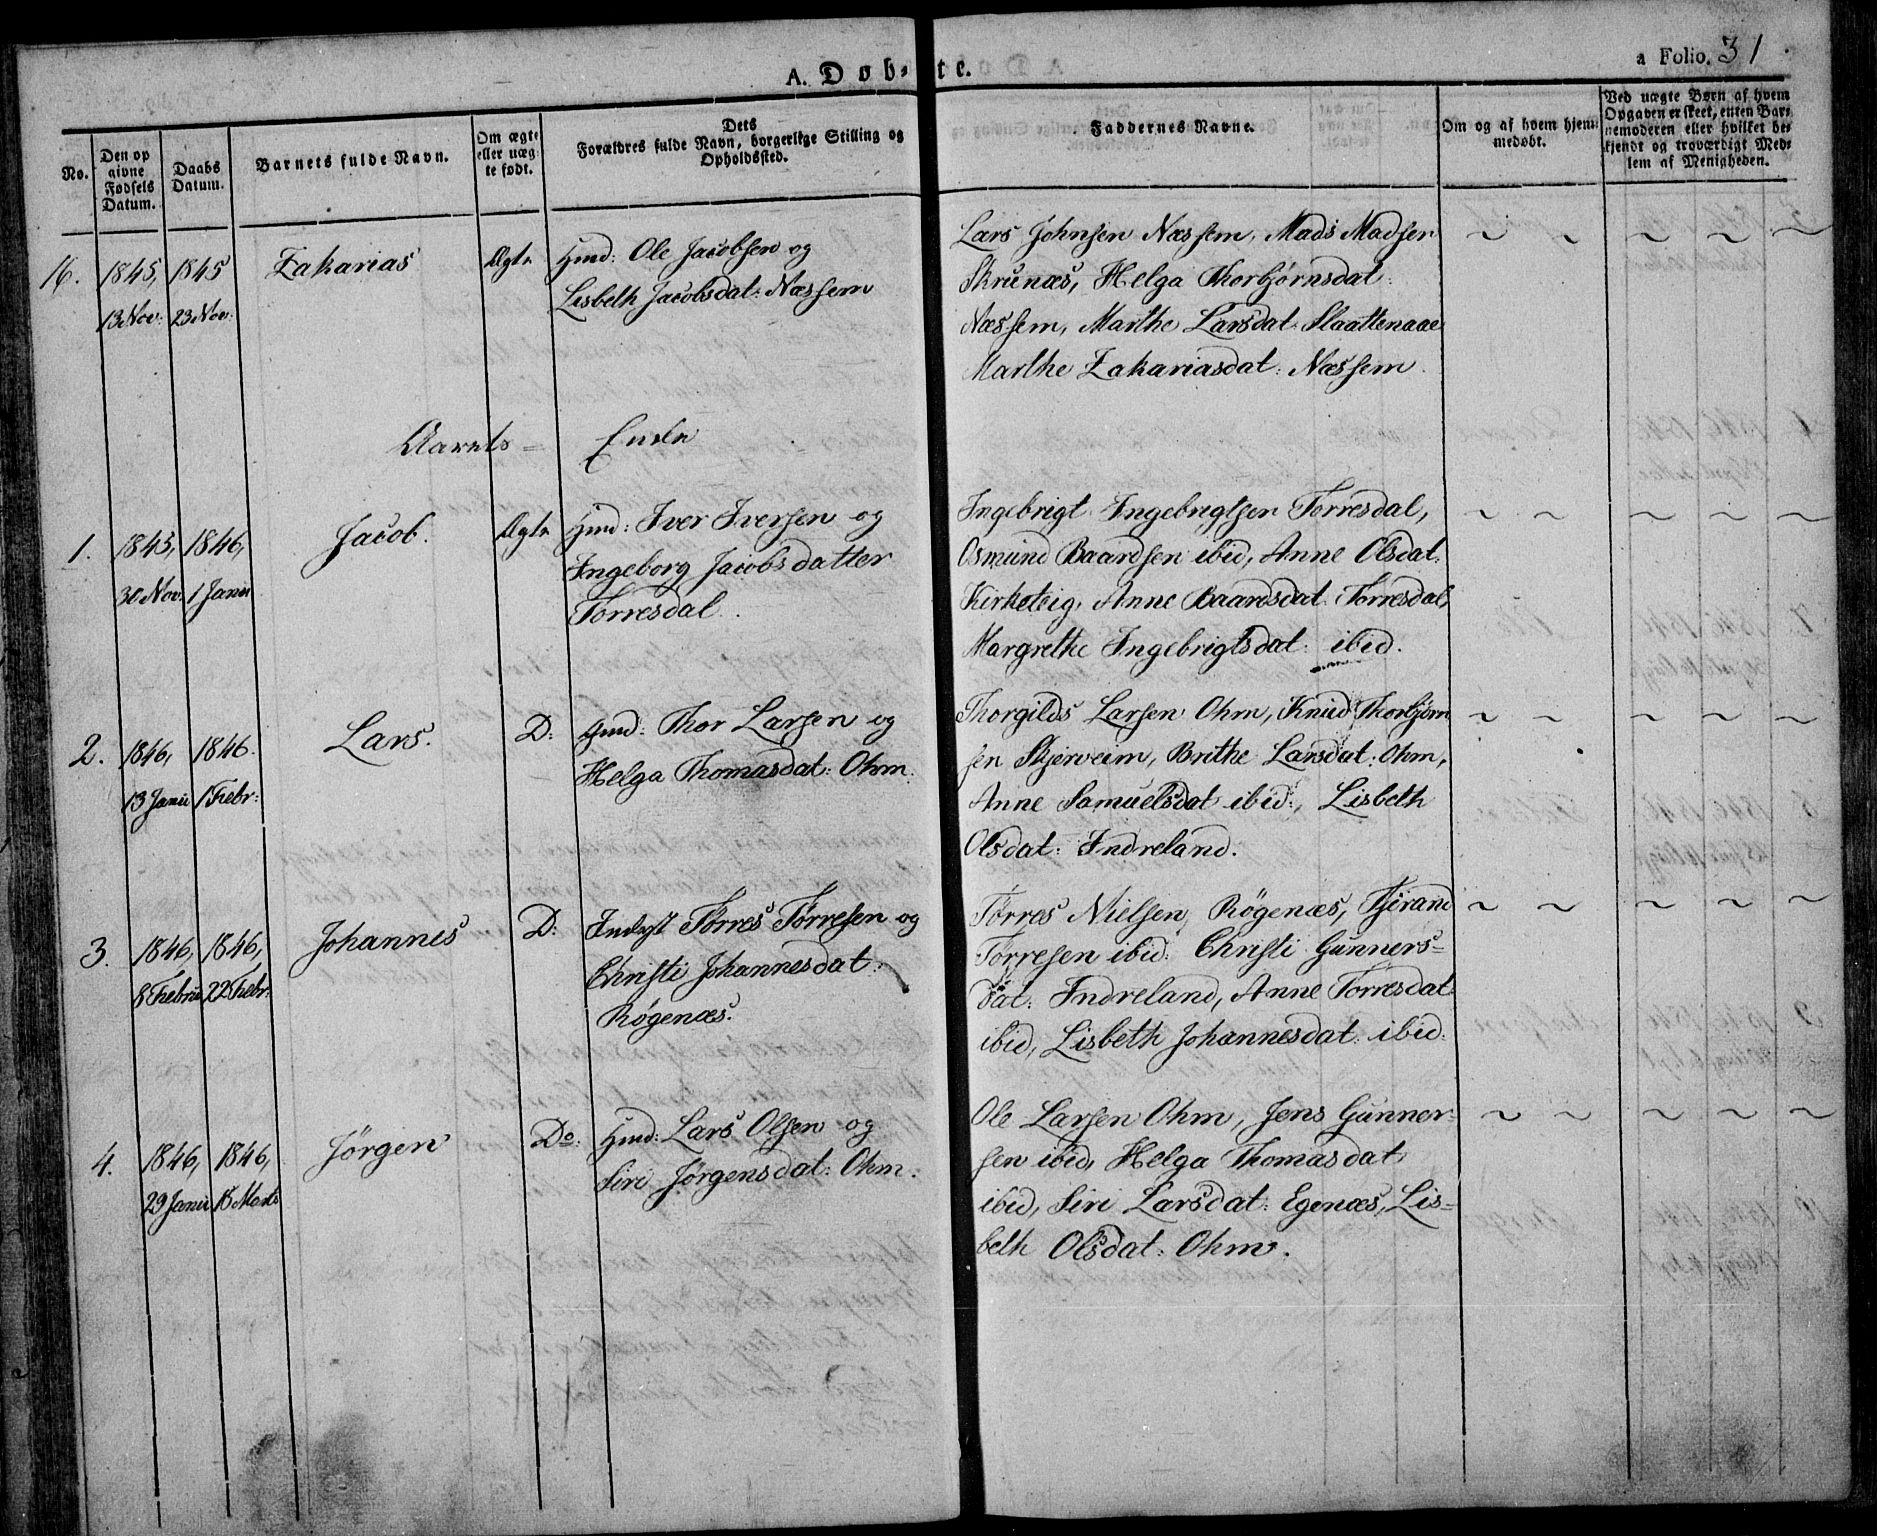 A. Døb-te.
a Folio. 31
No.
Den op
givne
Fødsels
Datum.
Daabs
Datum.
Barnets fulde Navn.
Om ægte
eller uæg-
te født.
Dets
Forældres fulde Navn, borgerlige Stilling og
Opholdssted.
Faddernes Navne.
Om og af hvem hjem-
medøbt.
Ved uægte Børn af hvem
Opgaven er skeet, enten Bar-
nemoderen eller hvilket be-
kjendt og troværdigt Med-
lem af Menigheden.
16. 1845, 13 Nov: 1845 23 Nov: Zakarias Ægte
Hmd: Ole Jacobsen og
Lisbeth Jacobsdat: Næssem
Lars Johnsen Næssem, Mads Madsen ~ ~ ~ ~ ~
Skrunæs, Helga Thorbjørnsdat:
Næssem, Marthe Larsdat: Slaattenaae
Marthe Zakariasdat: Næssem.
Aarets = Ende
1. 1845, 30 Nov: 1846, 1 Janu Jacob. Ægte
Hmd: Iver Iversen og
Ingeborg Jacobsdatter
Tørresdal.
Ingebrigt Ingebrigtsen Tørresdal, ~ ~ ~ ~ ~
Osmund Baardsen ibid, Anne Olsdat:
Kirketeig, Anne Baardsdat: Tørresdal,
Margrethe Ingebrigtsdat: ibid.
2. 1846, 13 Janu 1846. 1 Febr: Lars. D:
Hmd: Thor Larsen og
Helga Thomasdat: Ohm.
Thorgilds Larsen Ohm, Knud Thorbjørn ~ ~ ~ ~ ~
sen Skjerveim, Brithe Larsdat: Ohm,
Anne Samuelsdat ibid:, Lisbeth
Olsdat: Indreland.
3. 1846, 8 Febru 1846, 22 Febr: Johannes D:
Indst Tørres Tørresen og
Christi Johannesdat:
Røgenæs.
Tørres Nielsen Røgenæs, Tjerand ~ ~ ~ ~ ~
Tørresen ibid: Christi Gunners=
dat: Indreland, Anne Tørresdat:
ibid, Lisbeth Johannesdat: ibid:
4. 1846, 29 Janu 1846, 15 Marts Jørgen Do:
Hmd: Lars Olsen og
Siri Jørgensdat: Ohm.
Ole Larsen Ohm, Jens Gunner- ~ ~ ~ ~ ~
sen ibid, Helga Thomasdat
ibid, Siri Larsdat: Egenæs, Lis=
beth Olsdat: Ohm.